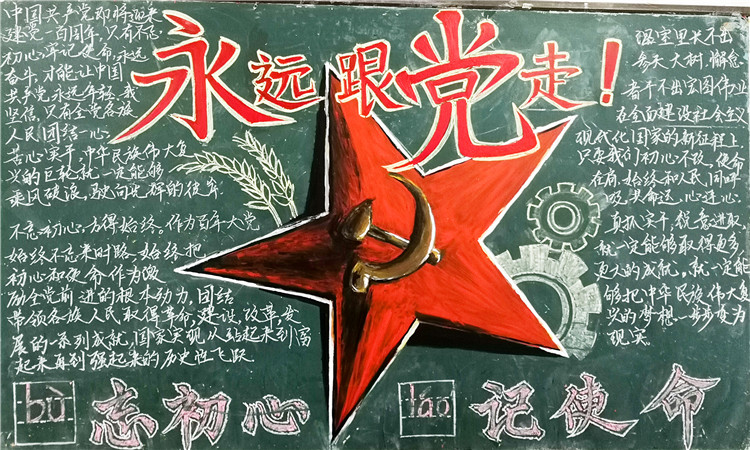 永远跟党走！
中国共产党即将迎来
建党一百周年，只有不忘
初心，牢记使命，永远
奋斗，才能让中国
共产党永远年轻。我
坚信，只有全党各族
人民团结一心
苦心实干，中华民族伟大复
兴的巨轮就一定能够
乘风破浪，驶向光辉的彼岸
不忘初心，方得始终。作为百年大党
始终不忘来时路，始终把
初心和使命作为激
励全党前进的根本动力，团结
带领各族人民取得革命，建设，改革，发
展的一系列成就，国家实现从站起来到富
起来再到强起来的历史性飞跃
温室里长不出
参天大树，懈怠
者干不出宏图伟业
在全面建设社会主义
现代化国家的新征程上
只要我们初心不改，使命
在肩，始终和人民同呼
吸，共命运，心连心，
真抓实干，锐意进取
就一定能够取得更多，
更大的成就。就一定能
够把中华民族伟大复
兴的梦想一步步变为
现实
bù忘初心 láo记使命